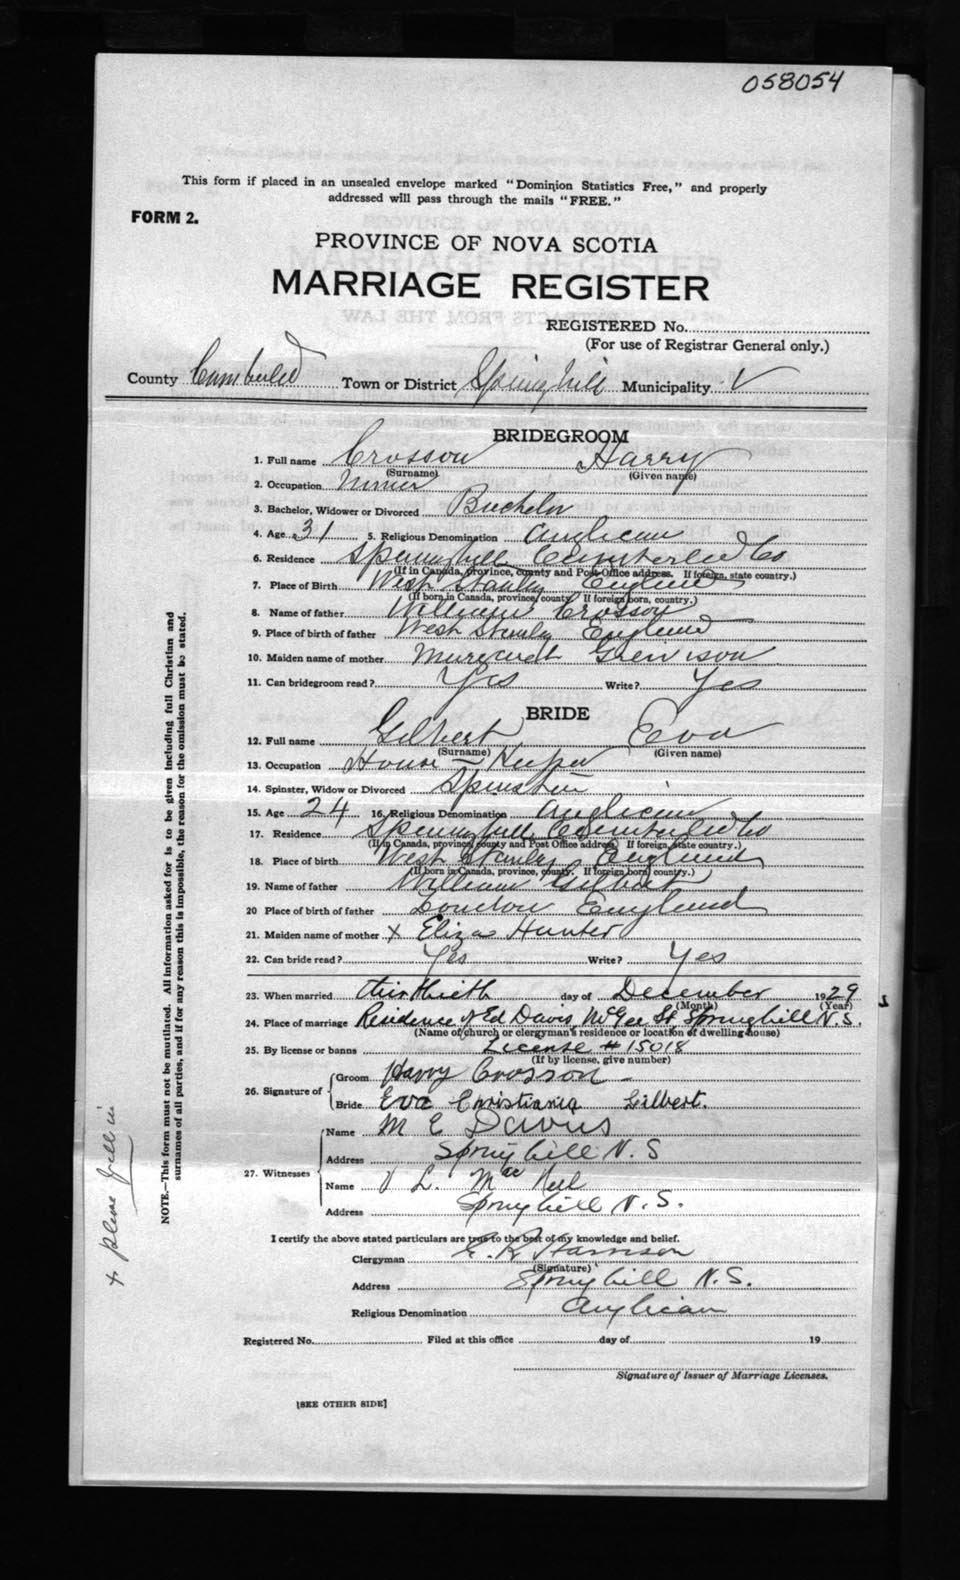 058054
This form if placed in an unsealed envelope marked "Dominion Statistics Free," and properly
addressed will pass through the mails "FREE."
FORM 2.
PROVINCE OF NOVA SCOTIA
MARRIAGE REGISTER
REGISTERED No.
(For use of Registrar General only.)
County Cumberled Town or District Springhill Municipality
BRIDEGROOM
1. Full name Crosson Harry
(Surname) (Given name)
2. Occupation Miner
3. Bachelor, Widower or Divorced Bachelor
4. Age 31 5. Religious Denomination Anglican
6. Residence Springhill Cumberled Co
(If in Canada, province, county and Post Office address. If foreign, state country.)
7. Place of Birth West Stanley England
(If born in Canada, province, county. If foreign born, country.)
8. Name of father William Crosson
9. Place of birth of father West Stanley England
10. Maiden name of mother Margaret
11. Can bridegroom read? Yes Write? Yes
BRIDE
12. Full name Gilbert Eva
(Surname) (Given name)
13. Occupation House - Keeper
14. Spinster, Widow or Divorced Spinster
15. Age 24 16. Religious Denomination Anglican
17. Residence Springhill Cumberled Co
(If in Canada, province, county and Post Office address. If foreign, state country.)
18. Place of birth West Stanley England
(If born in Canada, province, county. If foreign born, country.)
19. Name of father William Gilbert
20 Place of birth of father London England
21. Maiden name of mother x Eliza Hunter
22. Can bride read? Yes Write? Yes
23. When married thirtieth day of December 1929
(Month) (Year)
24. Place of marriage Residence of Ed Davis, McGee St, Springhill N.S.
(Name of church or clergyman's residence or location of dwelling house)
25. By license or banns License # 15018
(If by license, give number)
26. Signature of Groom Harry Crosson
Bride Eva Christiania Gilbert.
27. Witnesses
Name M E Davis
Address Springhill N.S
Name V L. MacNeil
Address Springhill N.S.
I certify the above stated particulars are true to the best of my knowledge and belief.
Clergyman E. R. Harrison
(Signature)
Address Springhill N.S.
Religious Denomination Anglican
Registered No. Filed at this office day of 19
Signature of Issuer of Marriage Licenses.
[SEE OTHER SIDE]
NOTE.—This form must not be mutilated. All information asked for is to be given including full Christian and
surnames of all parties, and if for any reason this is impossible, the reason for the omission must be stated.
x please fill in